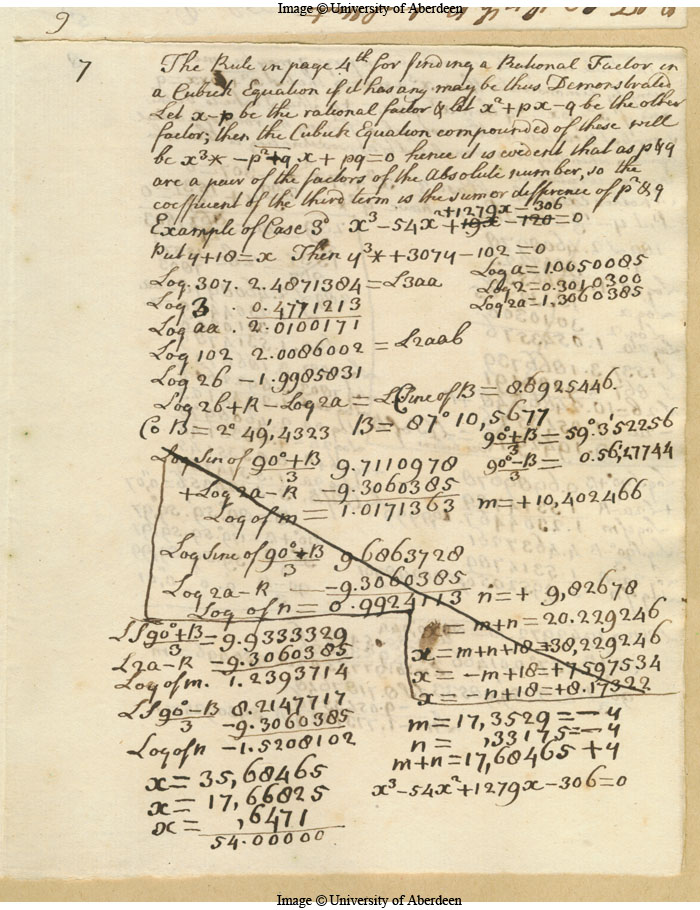 Image © University of Aberdeen
9
7
The Rule in page 4th for finding a Rational Factor in
a Cubick Equation if it has any may be thus Demonstrated
Let x-p be the rational factor & let x²+px-q be the other
factor; then the Cubick Equation compounded of these will
be x³* -p²+q x + pq=0 hence it is evident that as p & q
are a pair of the factors of the absolute number, so the
coefficient of the third term is the sum or difference of p² & q
+1279x-306
Example of Case 3d x³-54x²+19x-120=0
Put y+18=x Then y³*+307y-102=0
Log. 307. 2.4871384=L3aa
Log 3 . 0.4771213
Log aa . 2.0100171
Log a=1.0050085
Log 2=0.3010300
Log 2a=1.3060385
Log 102 2.0086002 = L2aab
Log 2b -1.9985831
Log 2b+R-Log 2a=LSine of B=8.6925446
Co B=2° 49',4323 B=87° 10,5677
90°+B/3=59°3'52256
90°-B/3= 0.56,27744
Log Sin of 90°+B/3 9.7110978
+Log 2a-R -9.3060385
Log of m = 1.0171363 m=+10,402466
Log Sine of 90°+B/3 9.6863728
Log 2a-R -9.3060385
Log of n = 0.9924113 n=+ 9,82678
= m+n=20.229246
x=m+n+18=38,229246
x= -m+18=+7,597534
x= -n+18=+8.17322
LS 90°+B/3 = 9.9333329
L2a-R -9.3060385
Log of m. 1.2393714
LS 90°-B/3 8.2147717
-9.3060385
Log of n -1.5208102
m=17,3529=-y
n= ,33175=-y
m+n=17,68465+y
x³-54x²+1279x-306=0
x=35,68465
x=17,66825
x= ,6471
54.00000
Image © University of Aberdeen